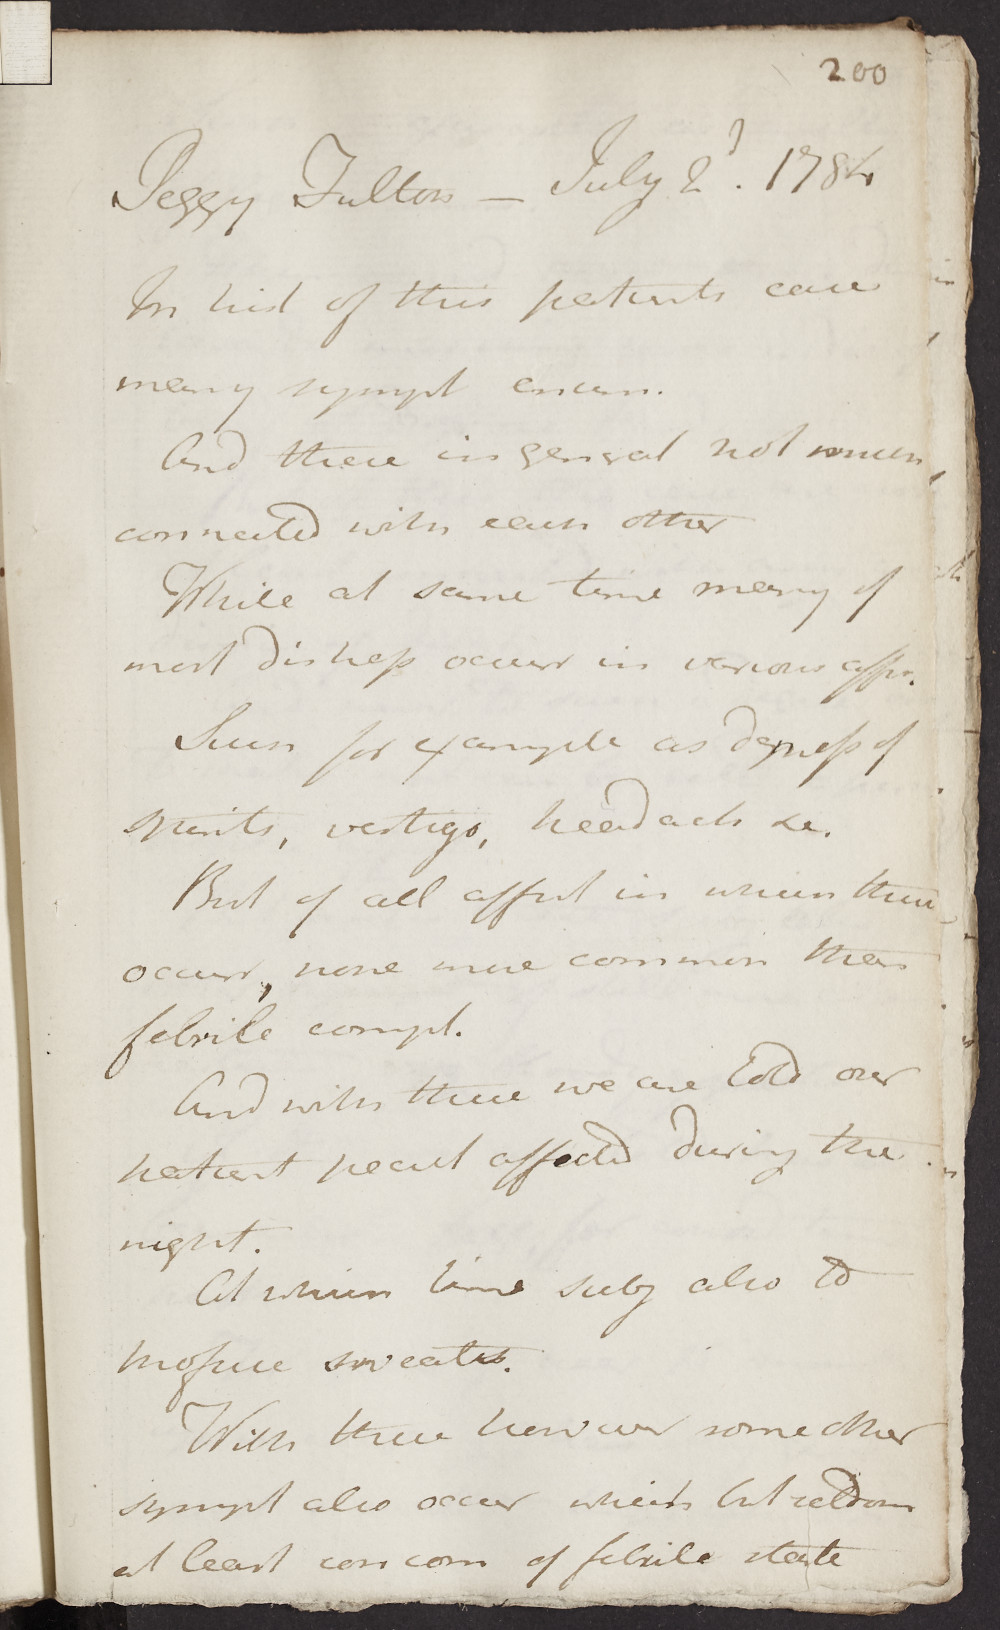 200
Peggy Fulton — July 2d. 1784
In hist of this patients case
many sympt concur.
And these in general not much
connected with each other
While at same time many of
most distress occur in various affec.
Such for example as depress of
spirits, vertigo, headach &c.
But of all affect in which these
occur, none more common than
febrile compl.
And with these we are told our
patient pecul affected during the
night.
At which time subj also to
profuse sweats.
With these however some other
sympt also occur which but seldom
at least concom of febrile state